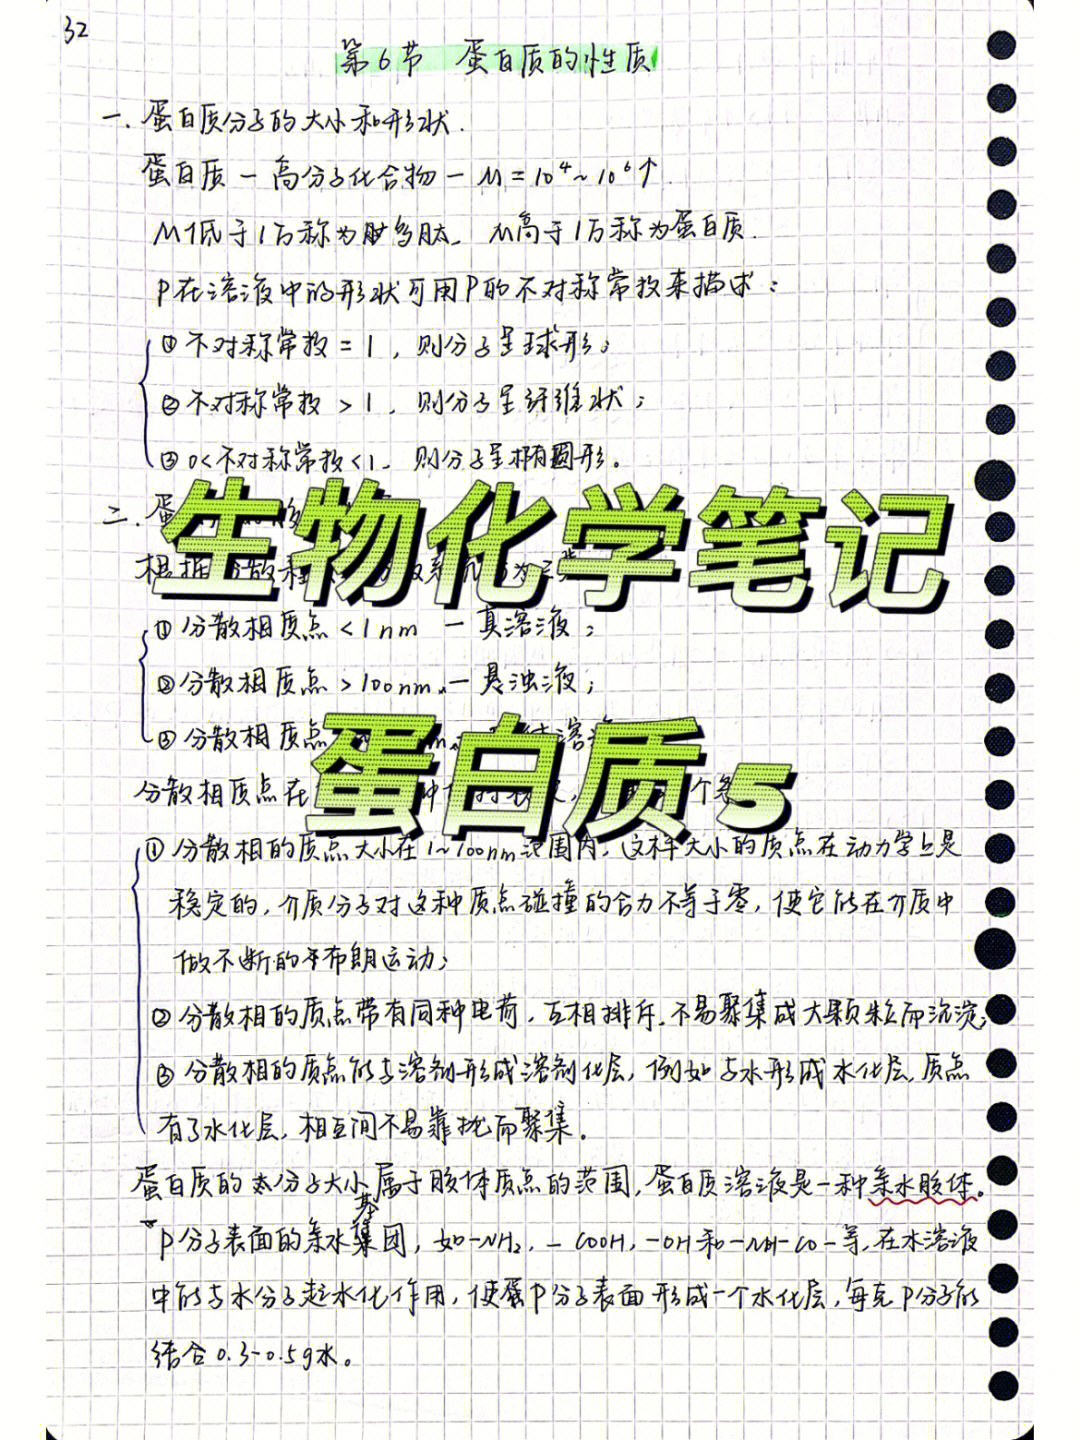 32
第6节 蛋白质的性质
一.蛋白质分子的大小和形状.
蛋白质-高分子化合物-M=10⁴~10⁶↑
M低于1万称为多肽. M高于1万称为蛋白质.
P在溶液中的形状可用P的不对称常数来描述:
①不对称常数=1, 则分子呈球形;
②不对称常数>1, 则分子呈纤维状;
③0<不对称常数<1, 则分子呈椭圆形.
二.蛋
生物化学笔记
根据
①分散相质点<1nm -真溶液;
②分散相质点>100nm.-悬浊液;
③分散相质点
蛋白质5
分散相质点在
①分散相的质点大小在1~100nm范围内, 这种大小的质点在动力学上是
稳定的, 介质分子对这种质点碰撞的合力不等于零, 使它能在介质中
做不断的布朗运动;
②分散相的质点带有同种电荷, 互相排斥, 不易聚集成大颗粒而沉淀;
③分散相的质点能与溶剂形成溶剂化层, 例如与水形成水化层, 质点
有了水化层, 相互间不易靠拢而聚集.
蛋白质的分子大小属于胶体质点的范围, 蛋白质溶液是一种亲水胶体。
P分子表面的亲水基团, 如-NH₂, -COOH, -OH和-NH-CO-等, 在水溶液
中能与水分子起水化作用, 使P分子表面形成一个水化层, 每克P分子能
结合0.3-0.5g水。